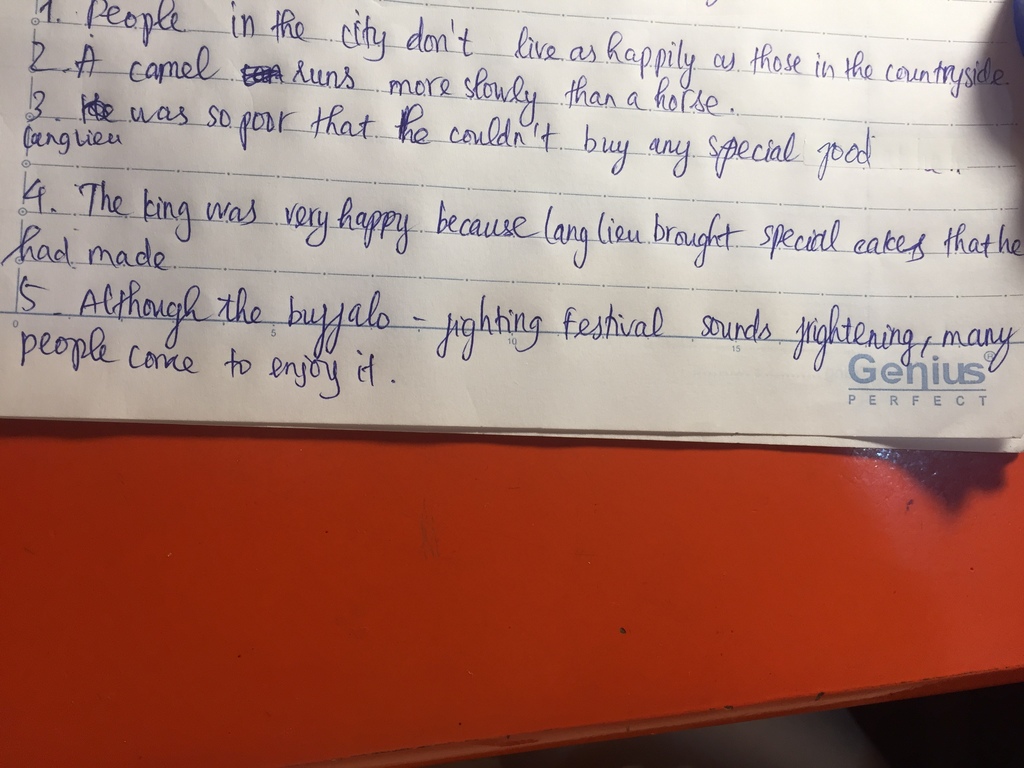 1. People in the city don't live as happily as those in the countryside.
2. A camel runs more slowly than a horse.
3. He was so poor that he couldn't buy any special food
lang lieu
4. The king was very happy because lang lieu brought special cakes that he
had made
5. Although the buffalo - fighting festival sounds frightening, many
people come to enjoy it.
5 10 15
Genius®
PERFECT